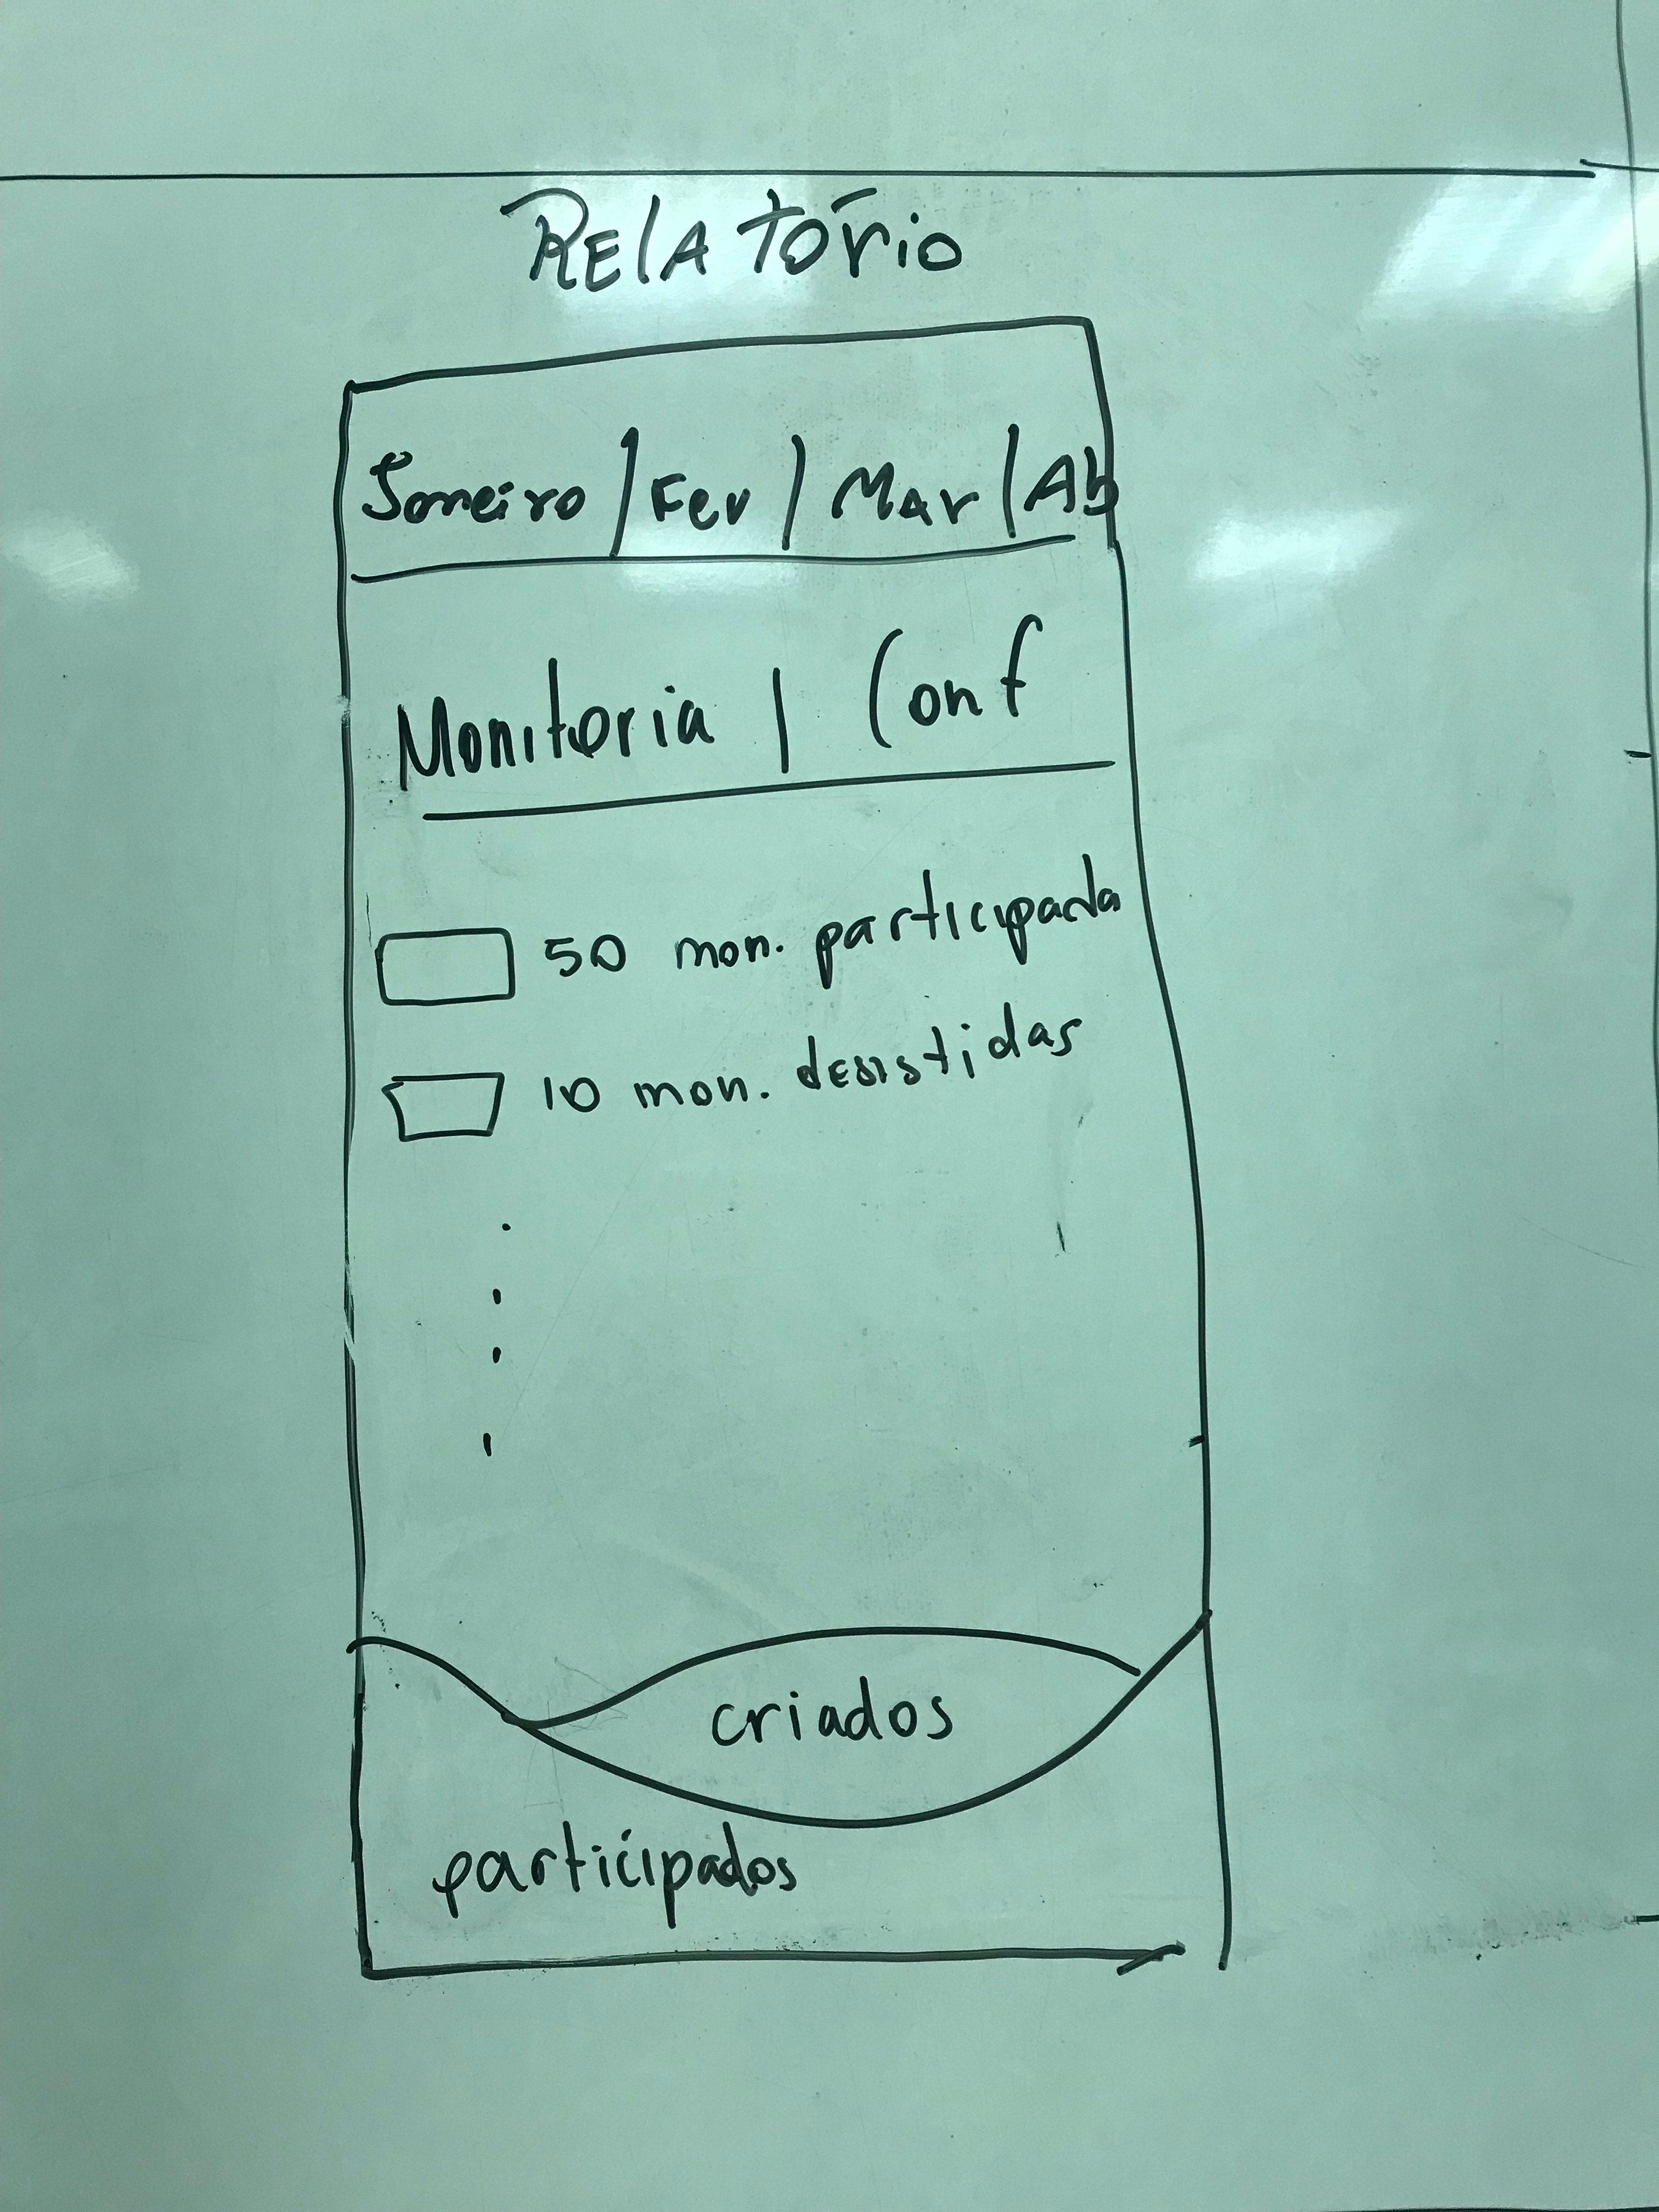 RElATório
Janeiro | Fev | Mar | Ab
Monitoria | Conf
50 mon. participada
10 mon. desistidas
criados
participados